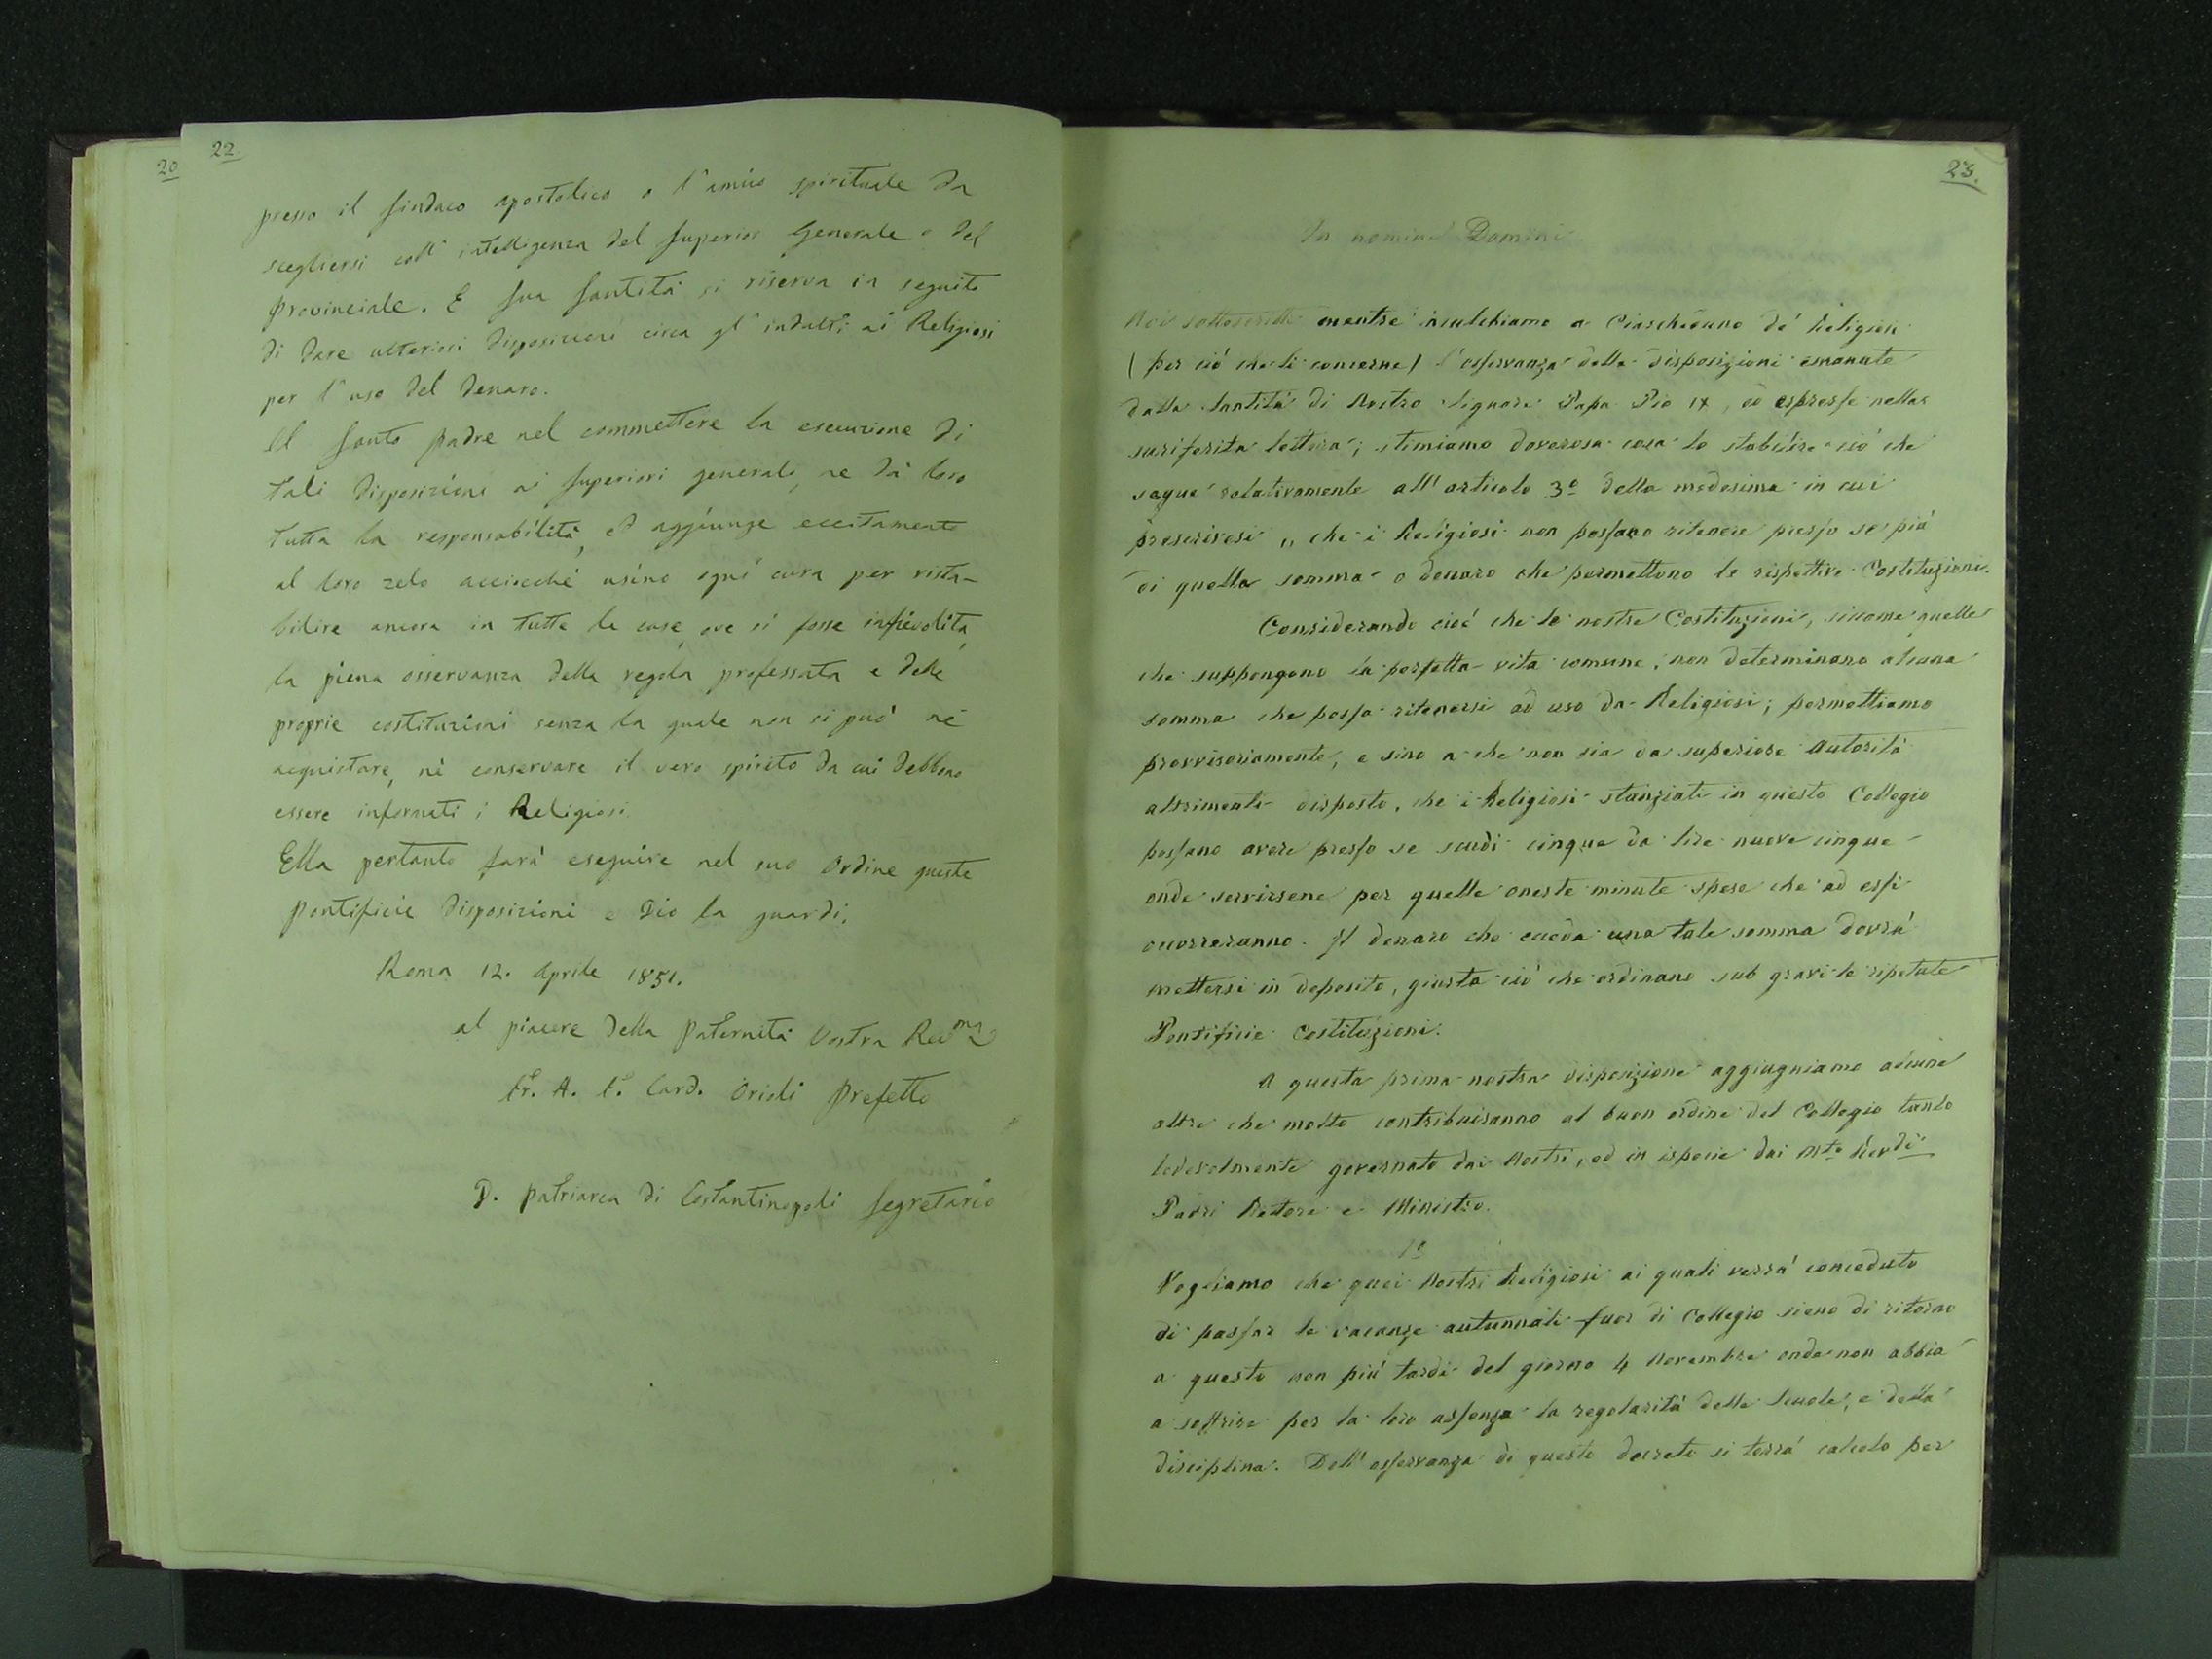 20
22
presso il Sindaco apostolico o l'amico spirituale da
scegliersi coll'intelligenza del Superior Generale o del
Provinciale. E Sua Santità si riserva in seguito
di dare ulteriori disposizioni circa gl'indulti ai Religiosi
per l'uso del denaro.
Il Santo padre nel commettere la esecuzione di
tali disposizioni ai Superiori generali, ne dà loro
tutta la responsabilità, ed aggiunge eccitamento
al loro zelo acciocchè usino ogni cura per rista-
bilire ancora in tutte le case, ove si fosse infievolita,
la piena osservanza della regola professata e delle
proprie costituzioni senza la quale non si può nè
acquistare, nè conservare il vero spirito da cui debbono
essere informati i Religiosi.
Ella pertanto farà eseguire nel suo Ordine queste
Pontificie disposizioni e Dio la guardi.
Roma 12. Aprile 1851.
al piacere della Paternità Vostra Rev.ma
Fr. A. F. Card. Orioli Prefetto
D. Patriarca di Costantinopoli Segretario
23.
In nomine Domini
Noi sottoscritti mentre inculchiamo a Ciascheduno de' Religiosi
(per ciò che li concerne) l'osservanza delle disposizioni emanate
dalla Santità di Nostro Signore Papa Pio IX, ed espresse nella
suriferita lettera; stimiamo doverosa cosa lo stabilire ciò che
segue relativamente all'articolo 3º della medesima in cui
prescrivesi „ che i Religiosi non possano ritenere presso se più
di quella somma o denaro che permettono le rispettive Costituzioni.
Considerando cioè che le nostre Costituzioni, siccome quelle
che suppongono la perfetta vita comune, non determinano alcuna
somma che possa ritenersi ad uso da Religiosi; permettiamo
provvisoriamente, e sino a che non sia da superiore Autorità
altrimenti disposto, che i Religiosi stanziati in questo Collegio
possano avere presso se scudi cinque da lire nuove cinque
onde servirsene per quelle oneste minute spese che ad essi
occorreranno. Il denaro che ecceda una tale somma dovrà
mettersi in deposito, giusta ciò che ordinano sub gravi le ripetute
Pontificie Costituzioni.
A questa prima nostra disposizione aggiugniamo alcune
altre che molto contribuiranno al buon ordine del Collegio tanto
lodevolmente governato dai Nostri, ed in ispecie dai Mto Revdi
Padri Rettore e Ministro.
1º
Vogliamo che quei Nostri Religiosi ai quali verrà conceduto
di passar le vacanze autunnali fuor di Collegio sieno di ritorno
a questo non più tardi del giorno 4 Novembre onde non abbia
a soffrire per la loro assenza la regolarità delle Scuole, e della
disciplina. Dell'osservanza di questo decreto si terrà calcolo per